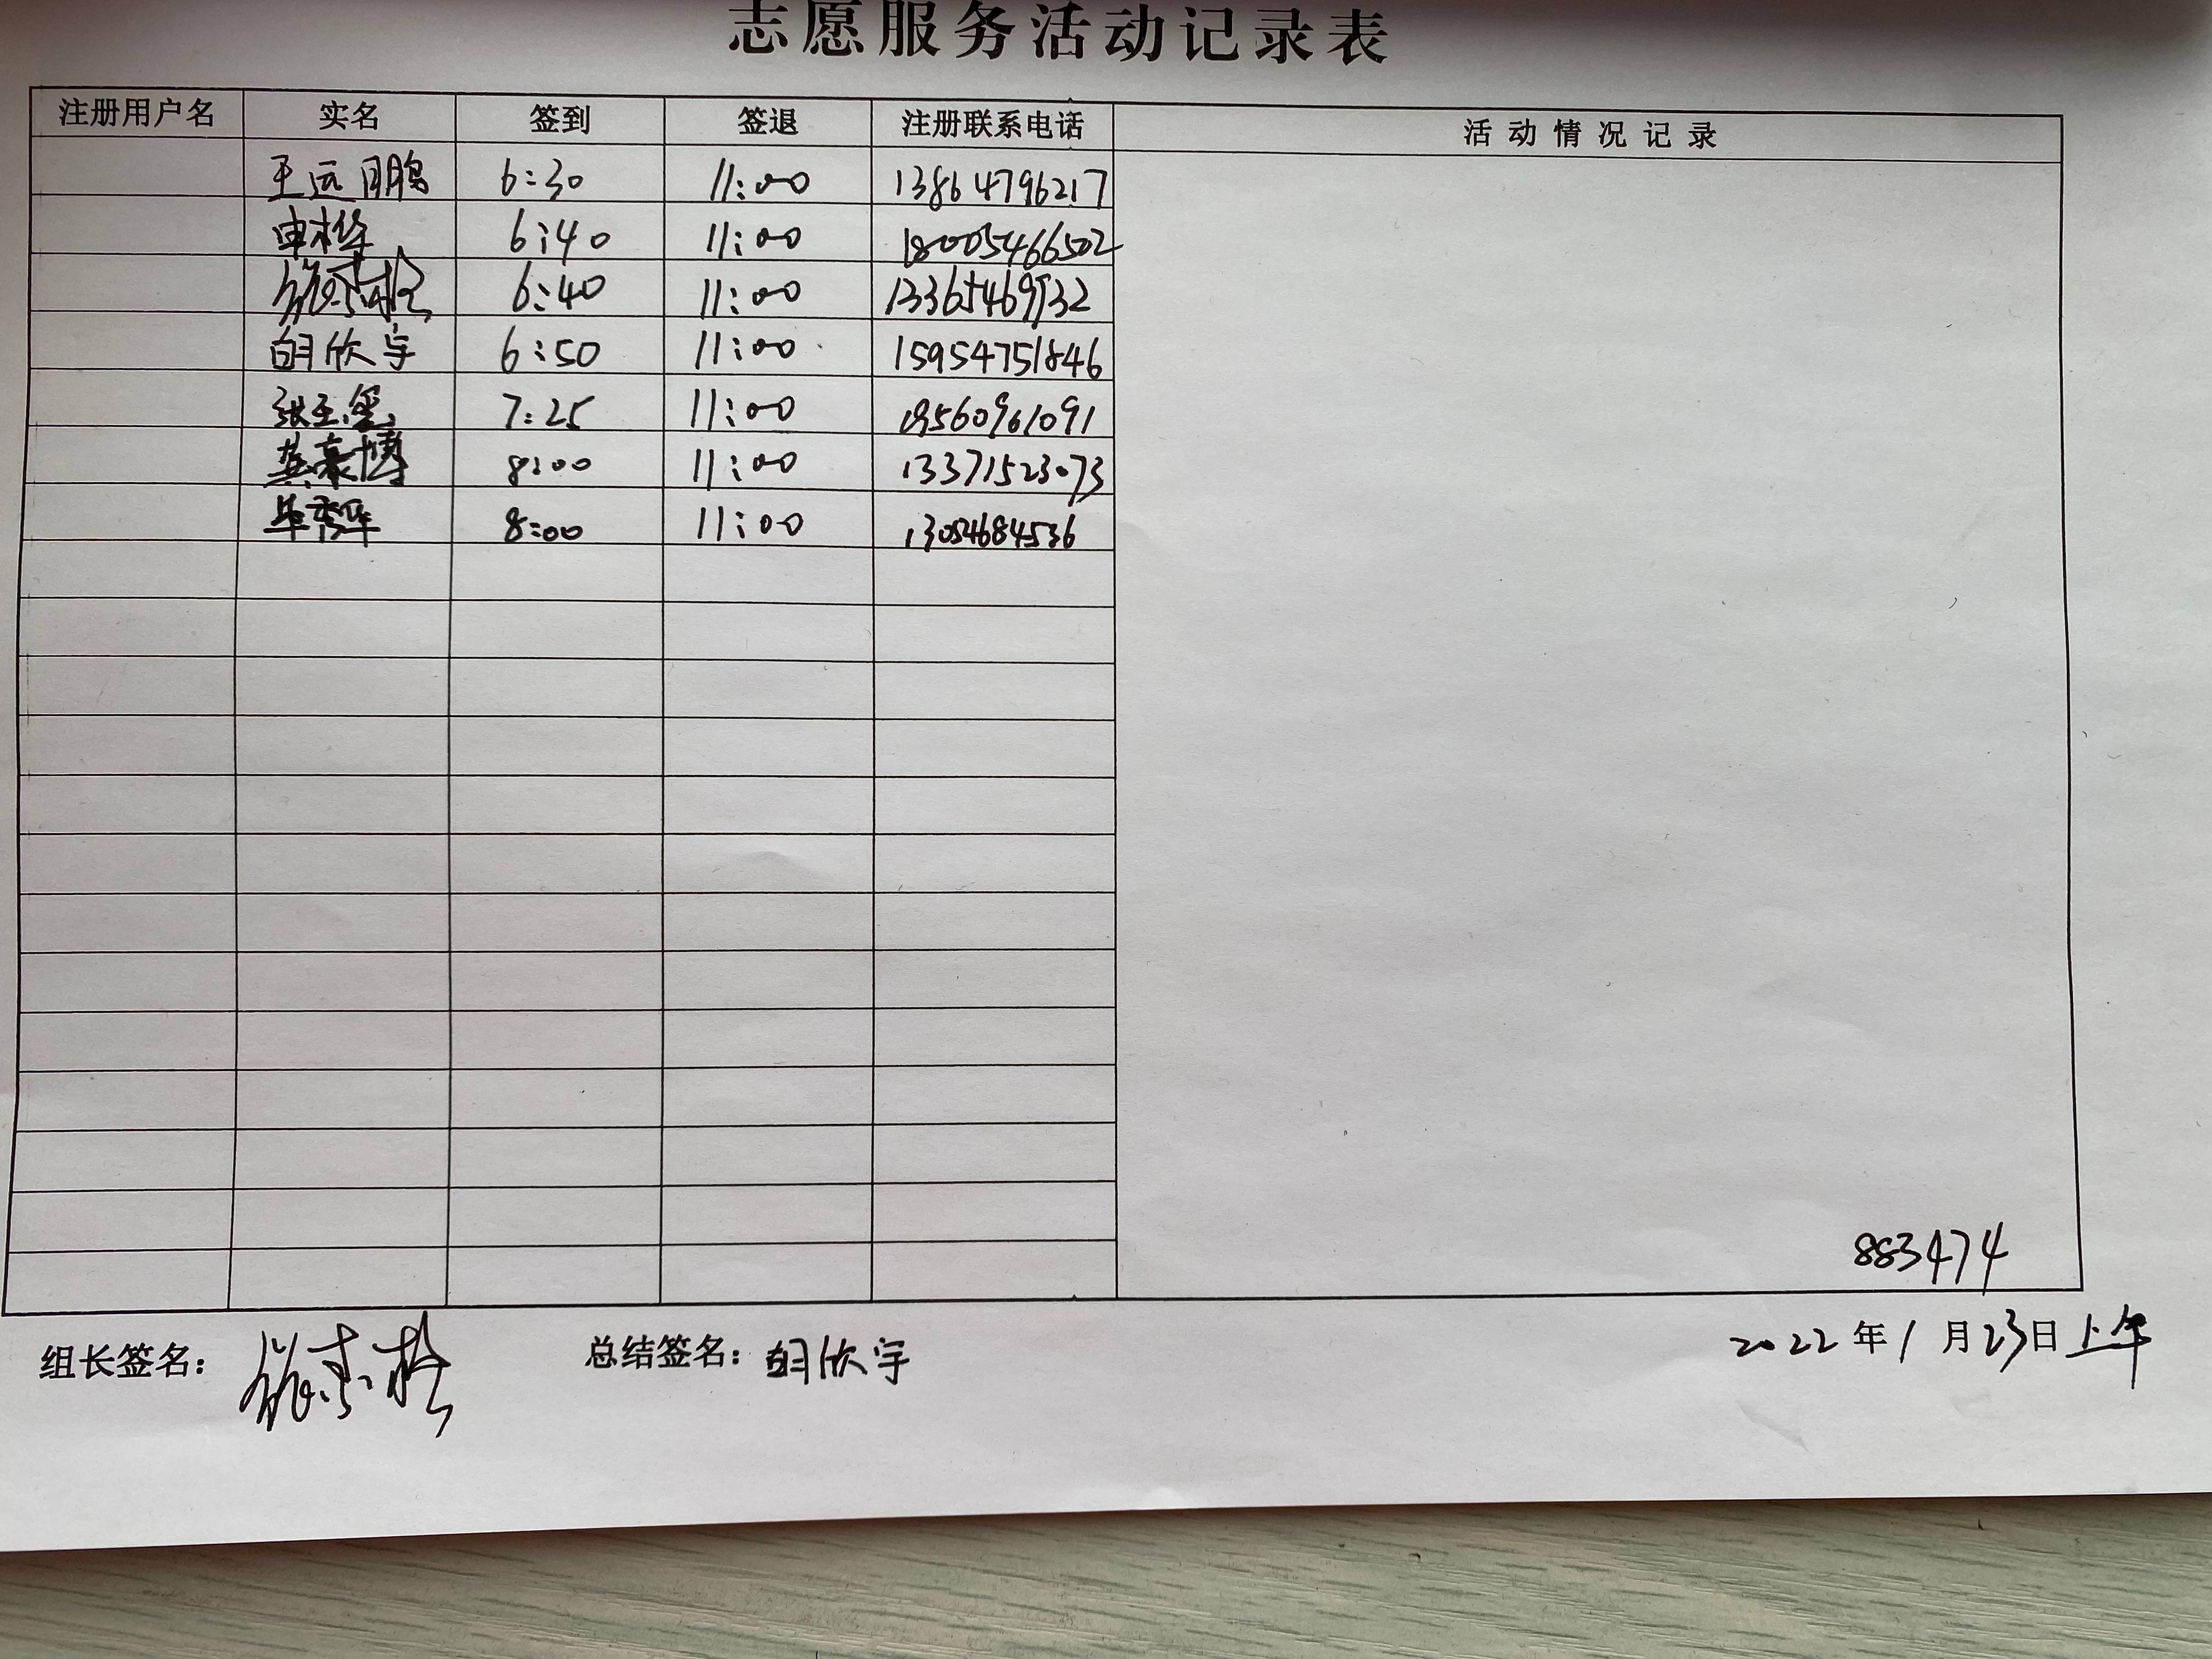 志愿服务活动记录表
注册用户名 实名 签到 签退 注册联系电话 活动情况记录
王远鹏 6:30 11:00 13864796217
申桦 6:40 11:00 18005466502
6:40 11:00 13365469932
胡欣宇 6:50 11:00 15954751846
张玉玺 7:25 11:00 19560961091
龚豪博 8:00 11:00 13371523073
毕秀华 8:00 11:00 13054684536
883474
组长签名: 总结签名: 胡欣宇 2022年1月23日上午